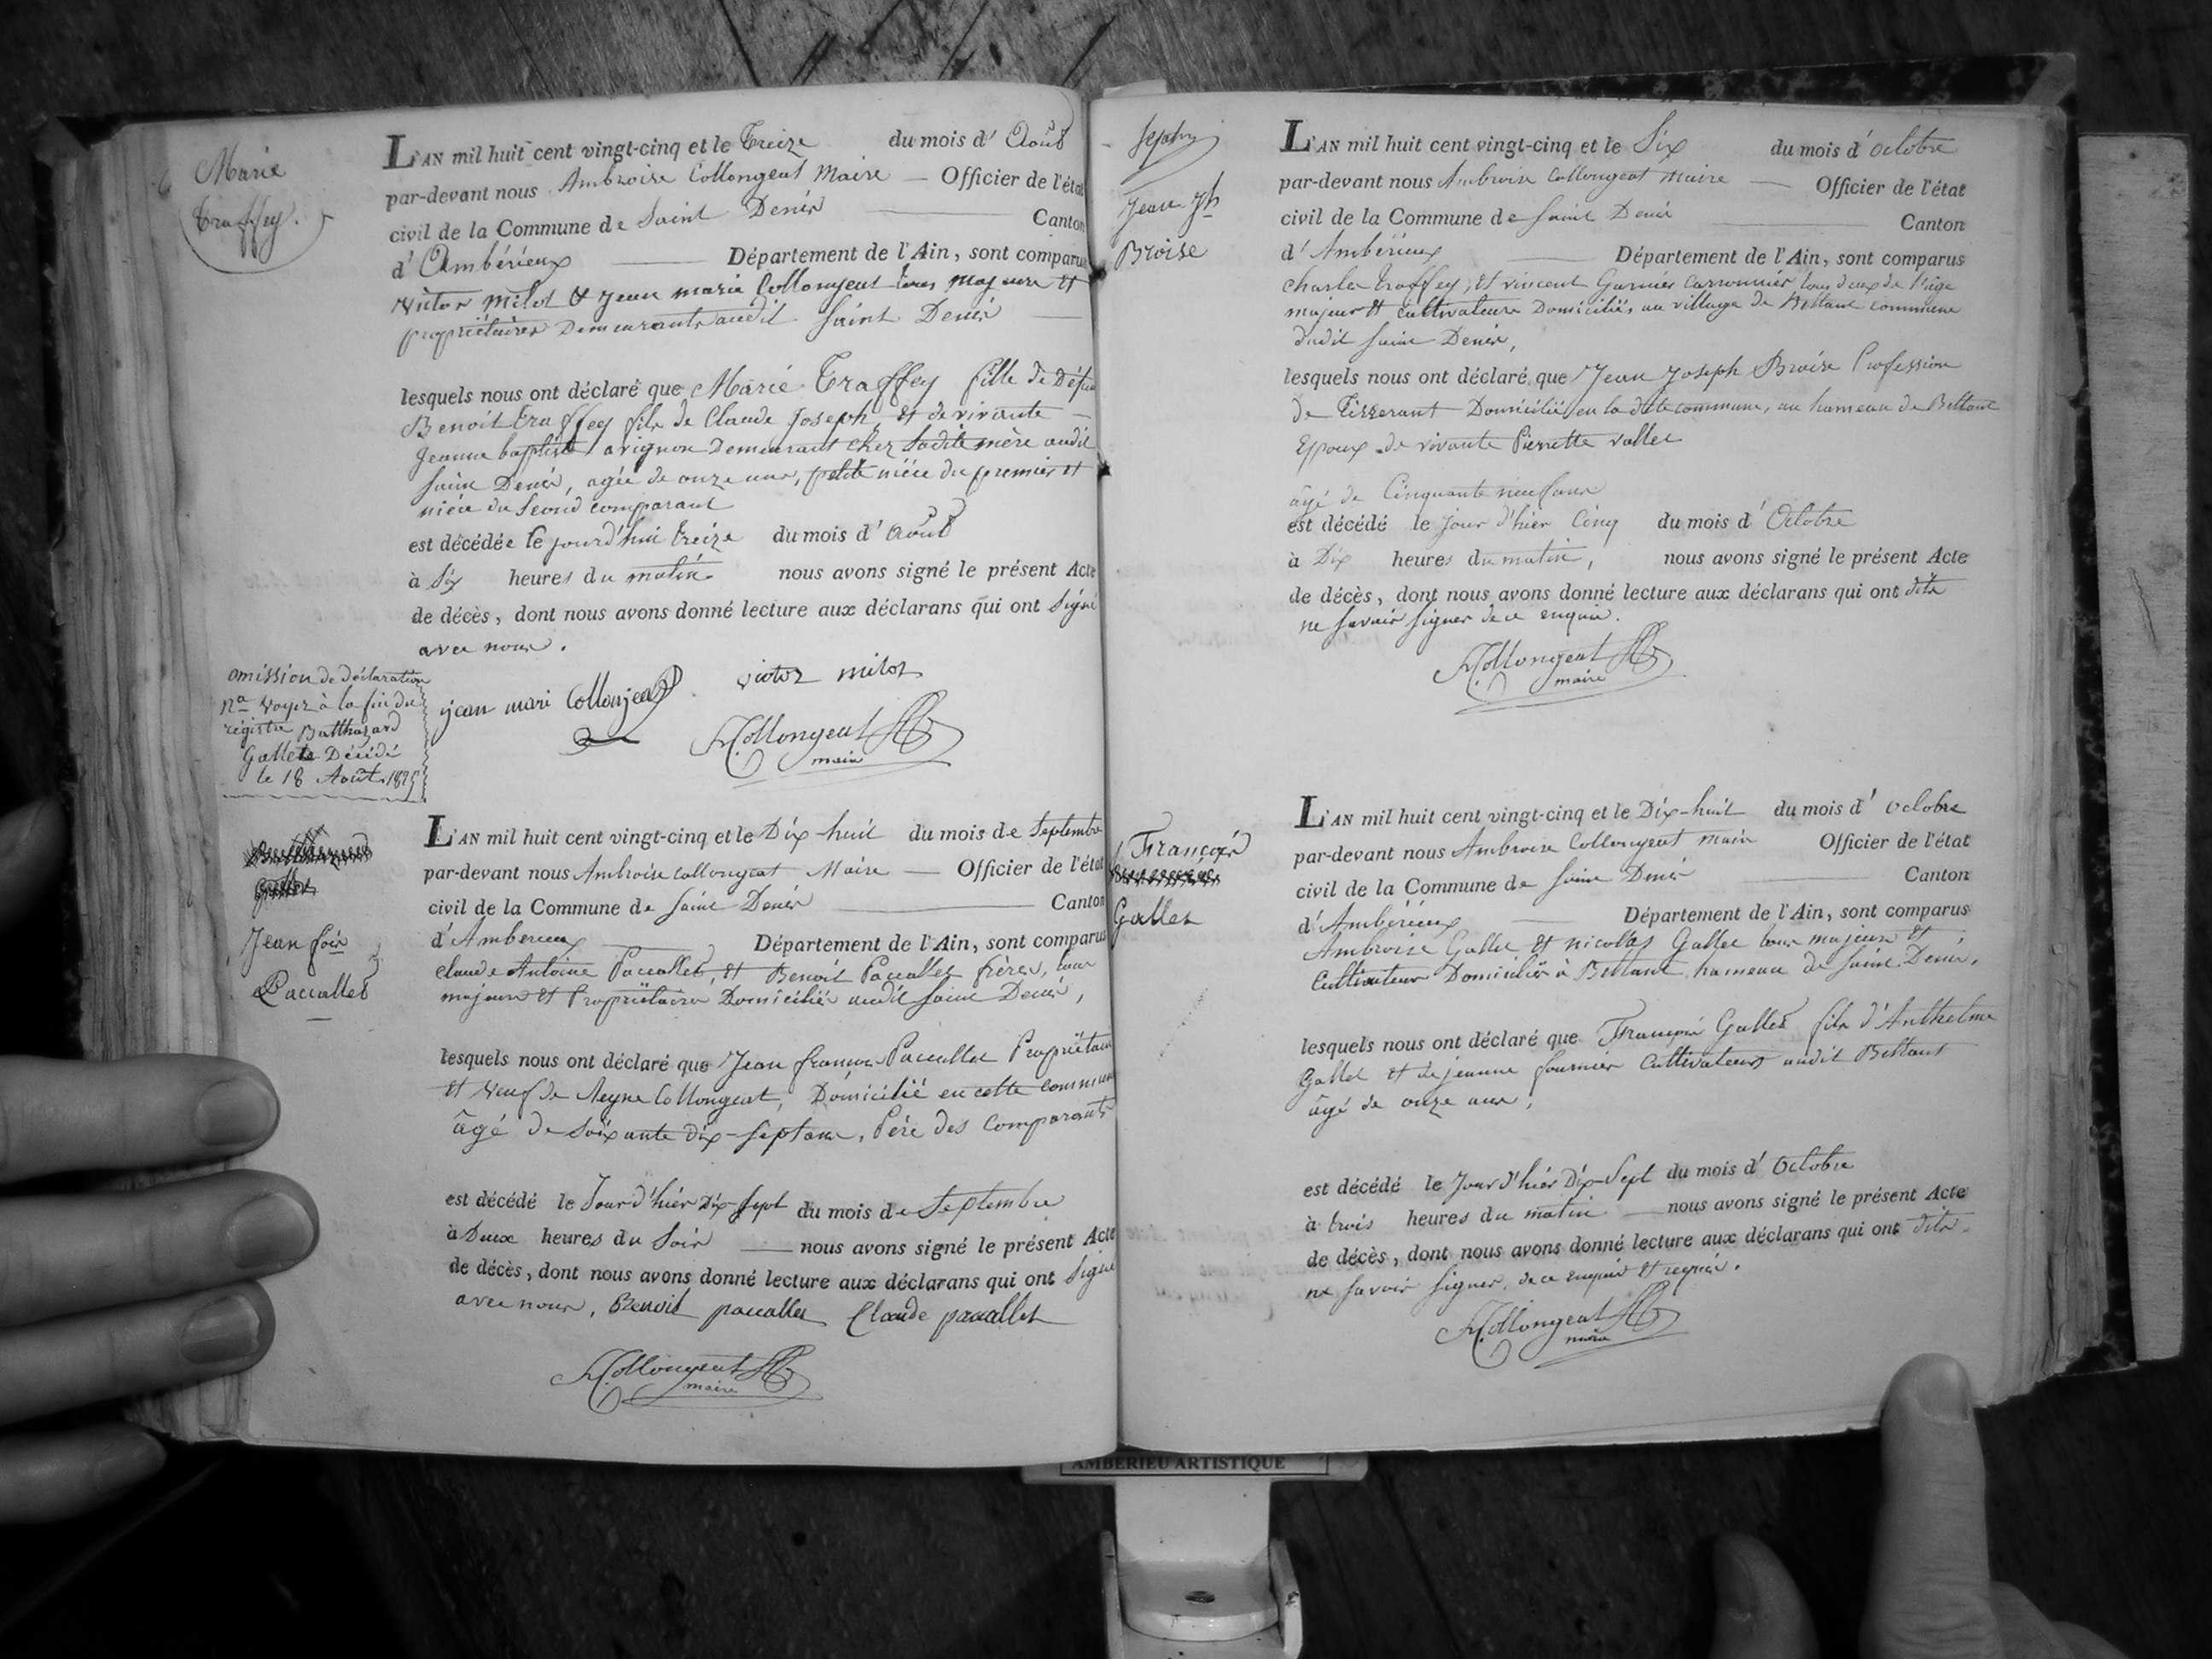 Marie
Traffey.
L'AN mil huit cent vingt-cinq et le Treize du mois d' Août
par-devant nous Ambroise Collongeat Maire Officier de l'état
civil de la Commune de Saint Denis Canton
d' Ambérieux Département de l'Ain, sont comparus
Victor Milot & Jean marie Collongeat tous majeurs et
propriétaires Demeurants audit Saint Denis
lesquels nous ont déclaré que Marie Traffey fille de Défunt
Benoit Traffey fils de Claude Joseph, et de vivante
Jeanne baptiste avignon Demeurant chez ladite mère audit
Saint Denis, agée de onze ans, petite niéce du premier et
niéce du Second comparant
est décédée le jourd'hui treize du mois d' Août
à Six heures du matin. nous avons signé le présent Acte
de décès, dont nous avons donné lecture aux déclarans qui ont Signé
avec nous.
jean mari Collonjeat victor milot
Collongeat
maire
omission de déclaration
Na Voyez à la fin du
régistre Balthazard
Gallet Décédé
le 18 Août 1825
Jean fois
Paccallet
L'AN mil huit cent vingt-cinq et le Dix-huit du mois de Septembre
par-devant nous Ambroise Collongeat Maire Officier de l'état
civil de la Commune de Saint Denis Canton
d' Amberieux Département de l'Ain, sont comparus
Claude Antoine Paccallet, et Benoit Paccallet frères, tous
majeurs et Propriétaires Domiciliés audit Saint Denis,
lesquels nous ont déclaré que Jean françois Paccallet Propriétaire
et Veuf de Reyne Collongeat, Domicilié en cette commune
âgé de Soixante dix-Sept ans, Père des Comparants
est décédé le Jour d'hier Dix-Sept du mois de Septembre
à Deux heures du Soir nous avons signé le présent Acte
de décès, dont nous avons donné lecture aux déclarans qui ont Signé
avec nous, Benoit paccallet Claude pacallet
Collongeat
maire
Jean Jh
Broise
L'AN mil huit cent vingt-cinq et le Six du mois d' octobre
par-devant nous Ambroise Collongeat maire Officier de l'état
civil de la Commune de Saint Denis Canton
d' Ambérieux Département de l'Ain, sont comparus
Charles Traffey, et vincent Garnier tous deux de l'âge
majeur et Cultivateurs Domiciliés au village de Bettant commune
dudit Saint Denis,
lesquels nous ont déclaré que Jean Joseph Broise Profession
de Tisserant Domicilié en la dite commune, au hameau de Bettant
Epoux de vivante Pierrette vallet
âgé de Cinquante neuf ans
est décédé le jour d'hier Cinq du mois d' Octobre
à Dix heures du matin, nous avons signé le présent Acte
de décès, dont nous avons donné lecture aux déclarans qui ont dits
ne Savoir Signer de ce enquis.
Collongeat
maire
François
Gallet
L'AN mil huit cent vingt-cinq et le Dix-huit du mois d' octobre
par-devant nous Ambroise Collongeat maire Officier de l'état
civil de la Commune de Saint Denis Canton
d' Ambérieux Département de l'Ain, sont comparus
Ambroise Gallet et nicollas Gallet tous majeurs et
Cultivateurs Domiciliés à Bettant hameau de Saint Denis,
lesquels nous ont déclaré que François Gallet fils d'Anthelme
Gallet et de jeanne fournier Cultivateurs audit Bettant
âgé de onze ans,
est décédé le Jour d'hier Dix-Sept du mois d' Octobre
à trois heures du matin nous avons signé le présent Acte
de décès, dont nous avons donné lecture aux déclarans qui ont dits
ne savoir Signer, de ce enquis et requis.
Collongeat
maire
AMBERIEU ARTISTIQUE